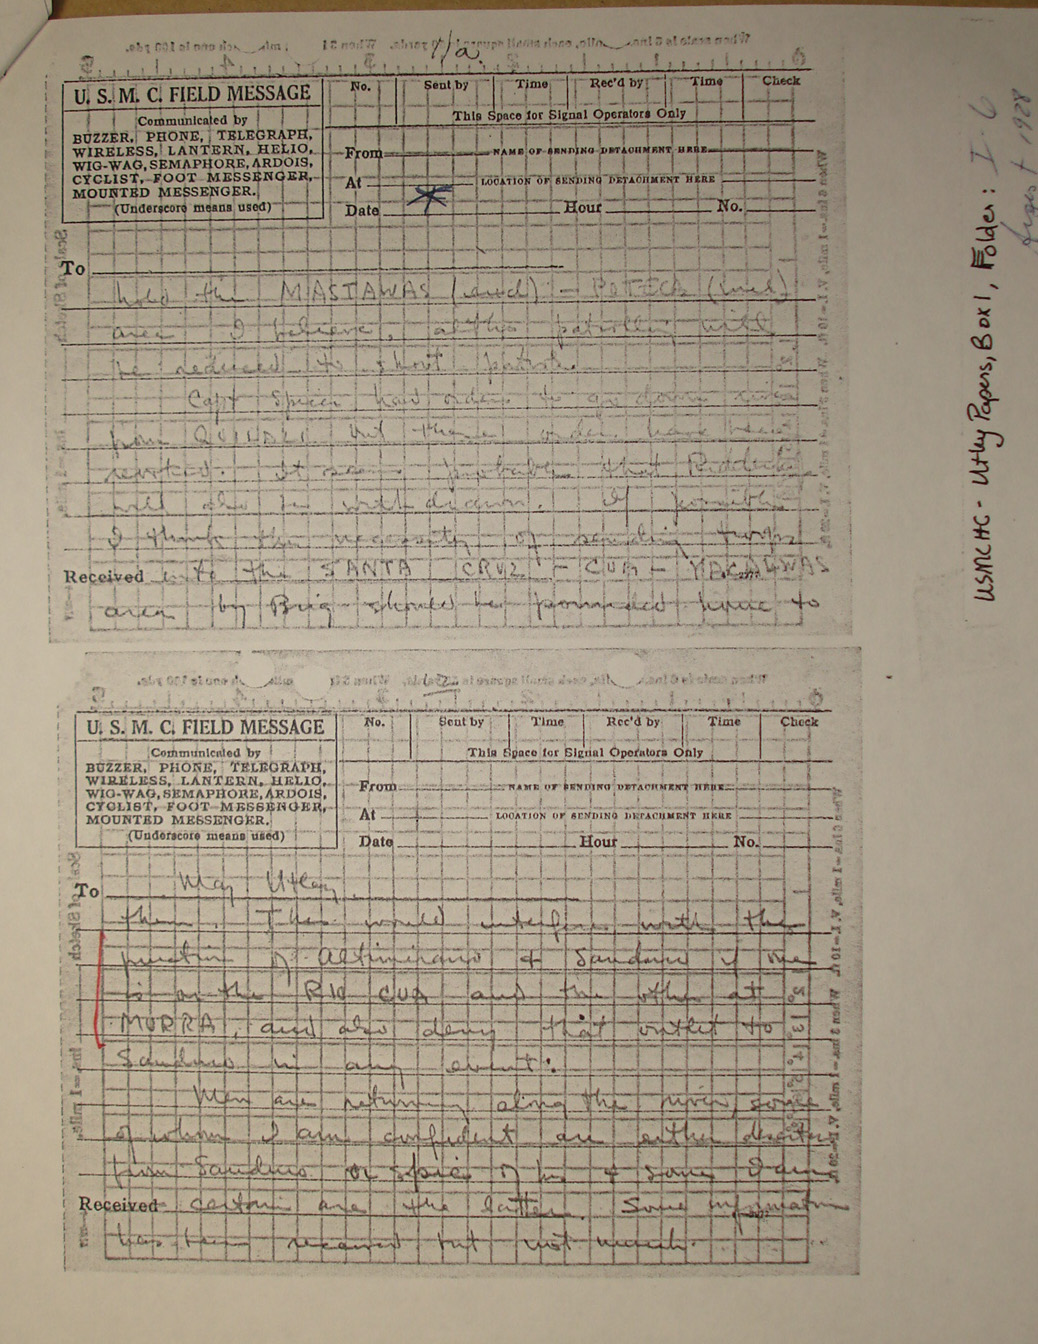 1/a.
U. S. M. C. FIELD MESSAGE
Communicated by
BUZZER, PHONE, TELEGRAPH,
WIRELESS, LANTERN, HELIO,
WIG-WAG, SEMAPHORE, ARDOIS,
CYCLIST, FOOT MESSENGER,
MOUNTED MESSENGER.
(Underscore means used)
No. Sent by Time Rec'd by Time Check
This Space for Signal Operators Only
From NAME OF SENDING DETACHMENT HERE
At LOCATION OF SENDING DETACHMENT HERE
Date Hour No.
To
hold the MASTAWAS (and) - POTECA (incl)
area I believe, altho patrolling will
be reduced to short patrols.
Capt Spicer had orders to go down river
from QUILALI but these orders have been
revoked. It seems probable that
will also be withdrawn. If possible
I think the necessity of sending troops
Received into the SANTA CRUZ - CUA - YACALWAS
area by Brig should be pounded home to
U. S. M. C. FIELD MESSAGE
Communicated by
BUZZER, PHONE, TELEGRAPH,
WIRELESS, LANTERN, HELIO,
WIG-WAG, SEMAPHORE, ARDOIS,
CYCLIST, FOOT MESSENGER,
MOUNTED MESSENGER.
(Underscore means used)
No. Sent by Time Rec'd by Time Check
This Space for Signal Operators Only
From NAME OF SENDING DETACHMENT HERE
At LOCATION OF SENDING DETACHMENT HERE
Date Hour No.
To Maj Utley
them. This would interfere with the
junction of Altimirano & Sandino if one
is on the RIO CUA and the other at
MURRA, and also deny that outlet to
Sandino in any event.
Men are returning along the river, some
of whom I am confident are either deserters
from Sandino or spies of his & some I am
Received certain are the latter. Some information
has been received but not much.
USMCHC - Utley Papers, Box 1, Folder: I-6
August 1928